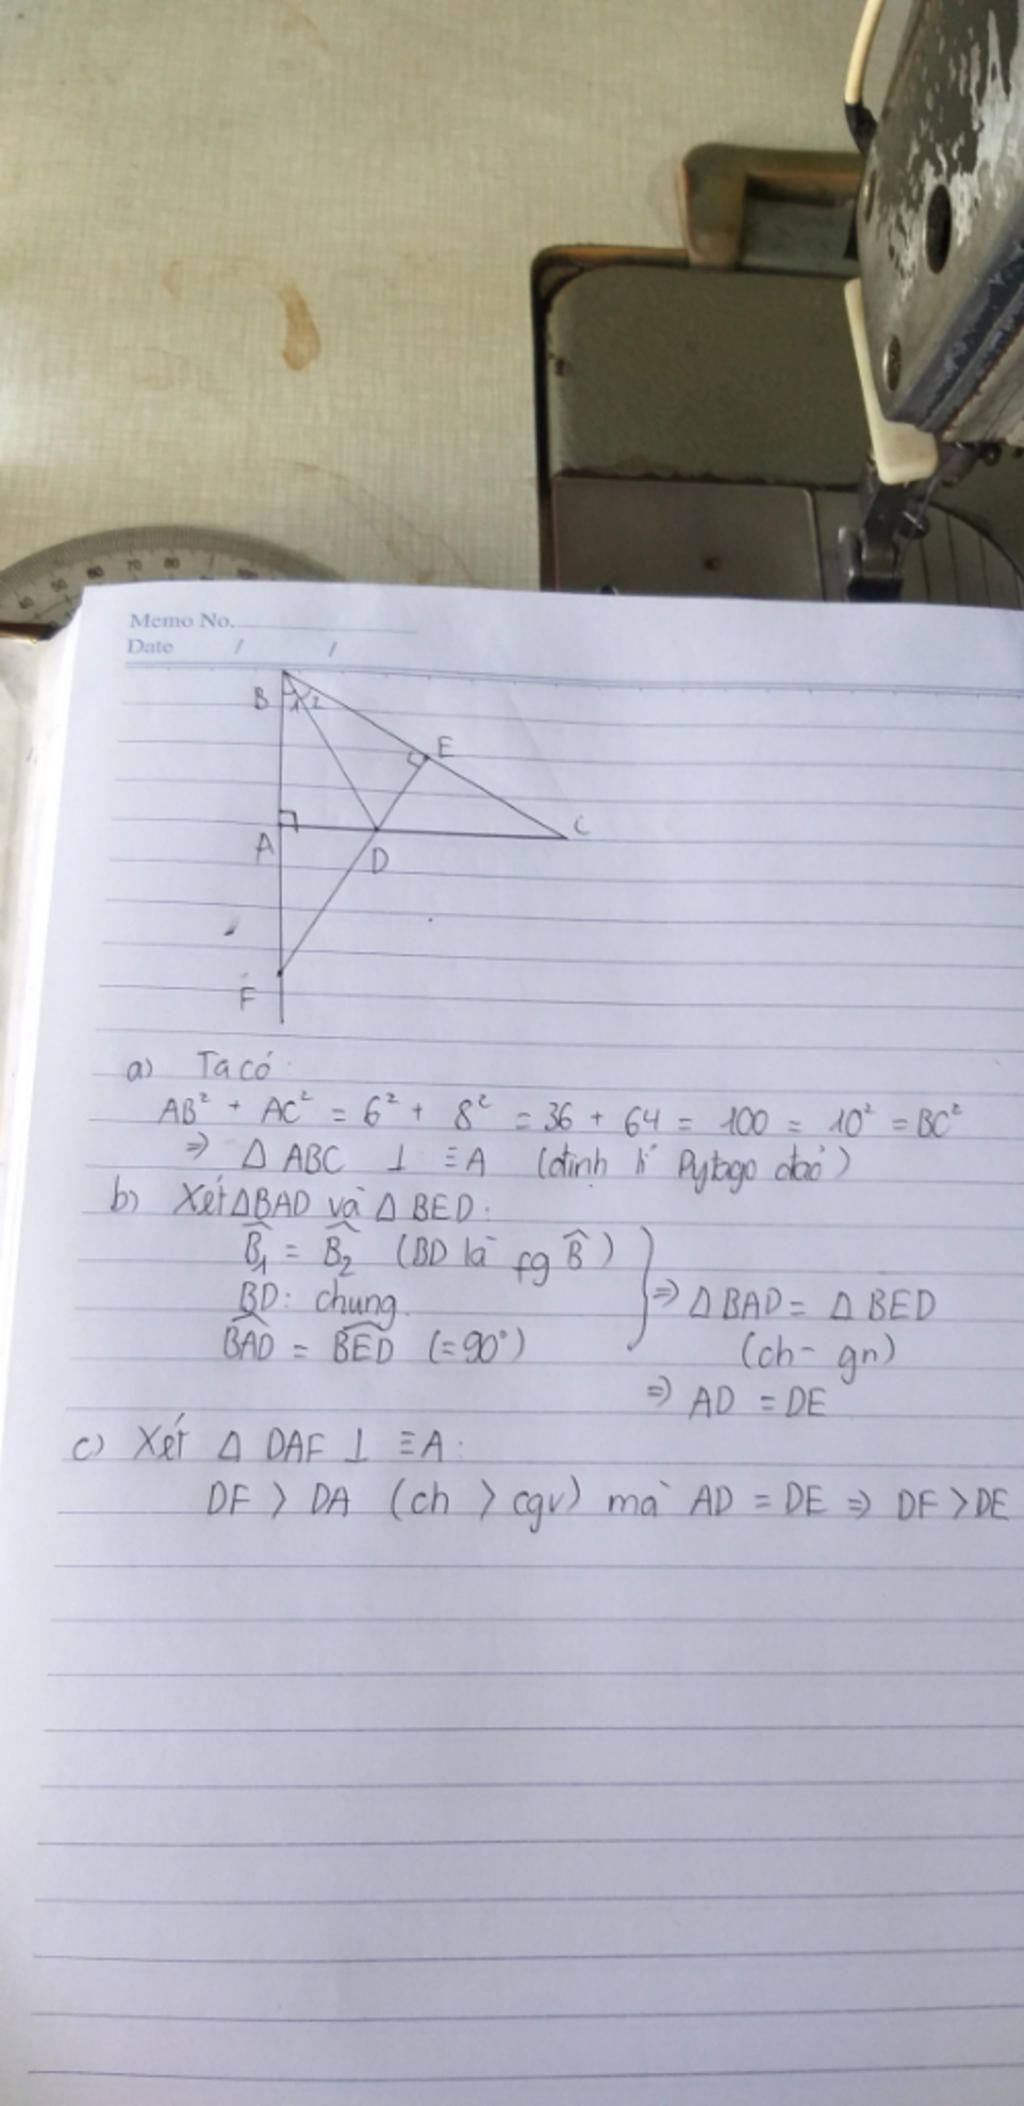 40 50 60 70 80 100
Memo No.
Date / /
B 1 2
E
A
D
C
F
a) Ta có:
AB² + AC² = 6² + 8² = 36 + 64 = 100 = 10² = BC²
⇒ Δ ABC ⊥ ≡ A (định lí Pytago đảo)
b) Xét Δ BAD và Δ BED:
B̂₁ = B̂₂ (BD là fg B̂)
BD: chung.
⇒ Δ BAD = Δ BED
B͡AD = B͡ED (= 90°)
(ch - gn)
⇒ AD = DE
c) Xét Δ DAF ⊥ ≡ A:
DF > DA (ch > cgv) mà AD = DE ⇒ DF > DE